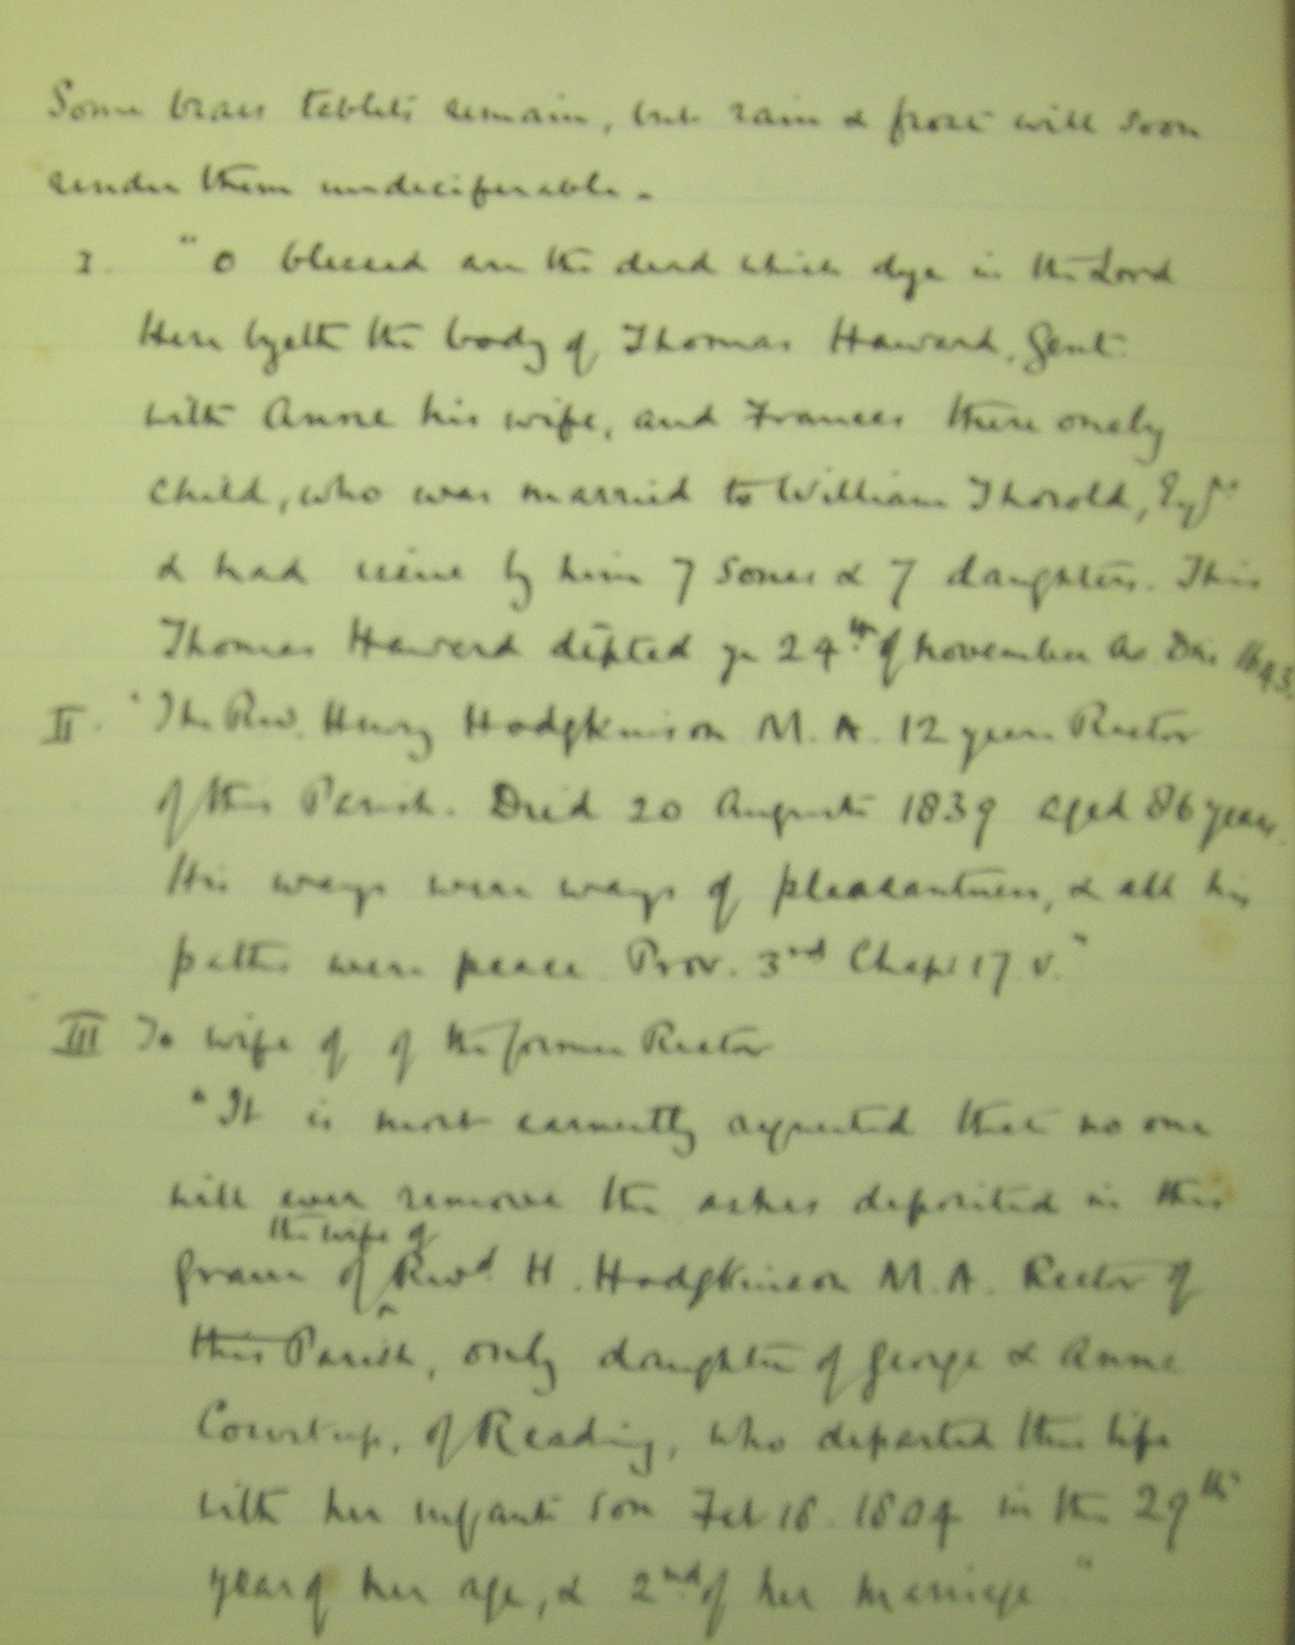 Some brass tablets remain, but rain & frost will soon
render them undeciferable.
I. "O blessed are the dead which dye in the Lord
Here lyeth the body of Thomas Haward, Gent
with Anne his wife, and Frances there onely
child, who was married to William Thorold,
& had issue by him 7 sones & 7 daughters. This
Thomas Haward depted ye 24th of November Ao Dni 1643.
II. "The Rev. Henry Hodgkinson M.A. 12 years Rector
of this Parish. Died 20 August 1839 aged 86 years.
His ways were ways of pleasantness, & all his
paths were peace Prov. 3rd Chap 17 v."
III To wife of of the former Rector
"It is most earnestly requested that no one
will ever remove the ashes deposited in this
the wife of
grave of Revd H. Hodgkinson M.A. Rector of
this Parish, only daughter of George & Anne
Courtup, of Reading, who departed this life
with her infant son Feb 18. 1804 in the 29th
year of her age, & 2nd of her marriage"